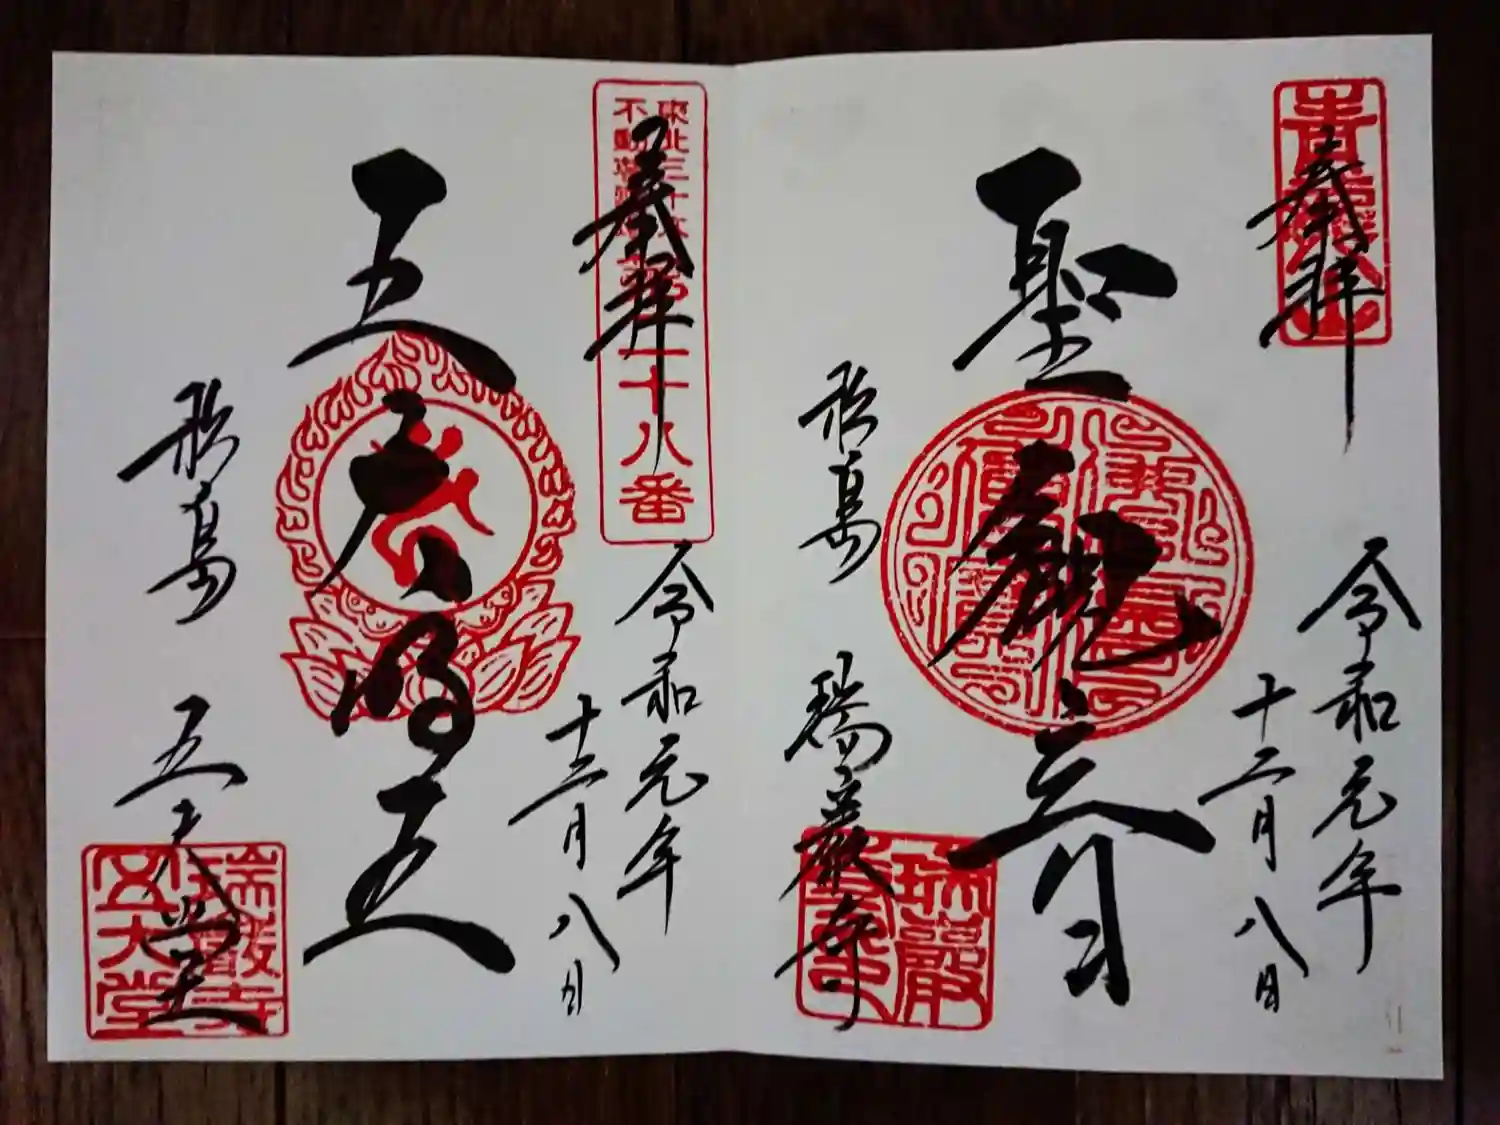 奉拝
令和元年
十二月八日
聖観立月
松島
瑞巌寺
瑞巌
奉拝
東北三十六
不動尊霊場
二十八番
令和元年
十二月八日
五大明王
松島
五大堂
瑞巌寺
五大堂